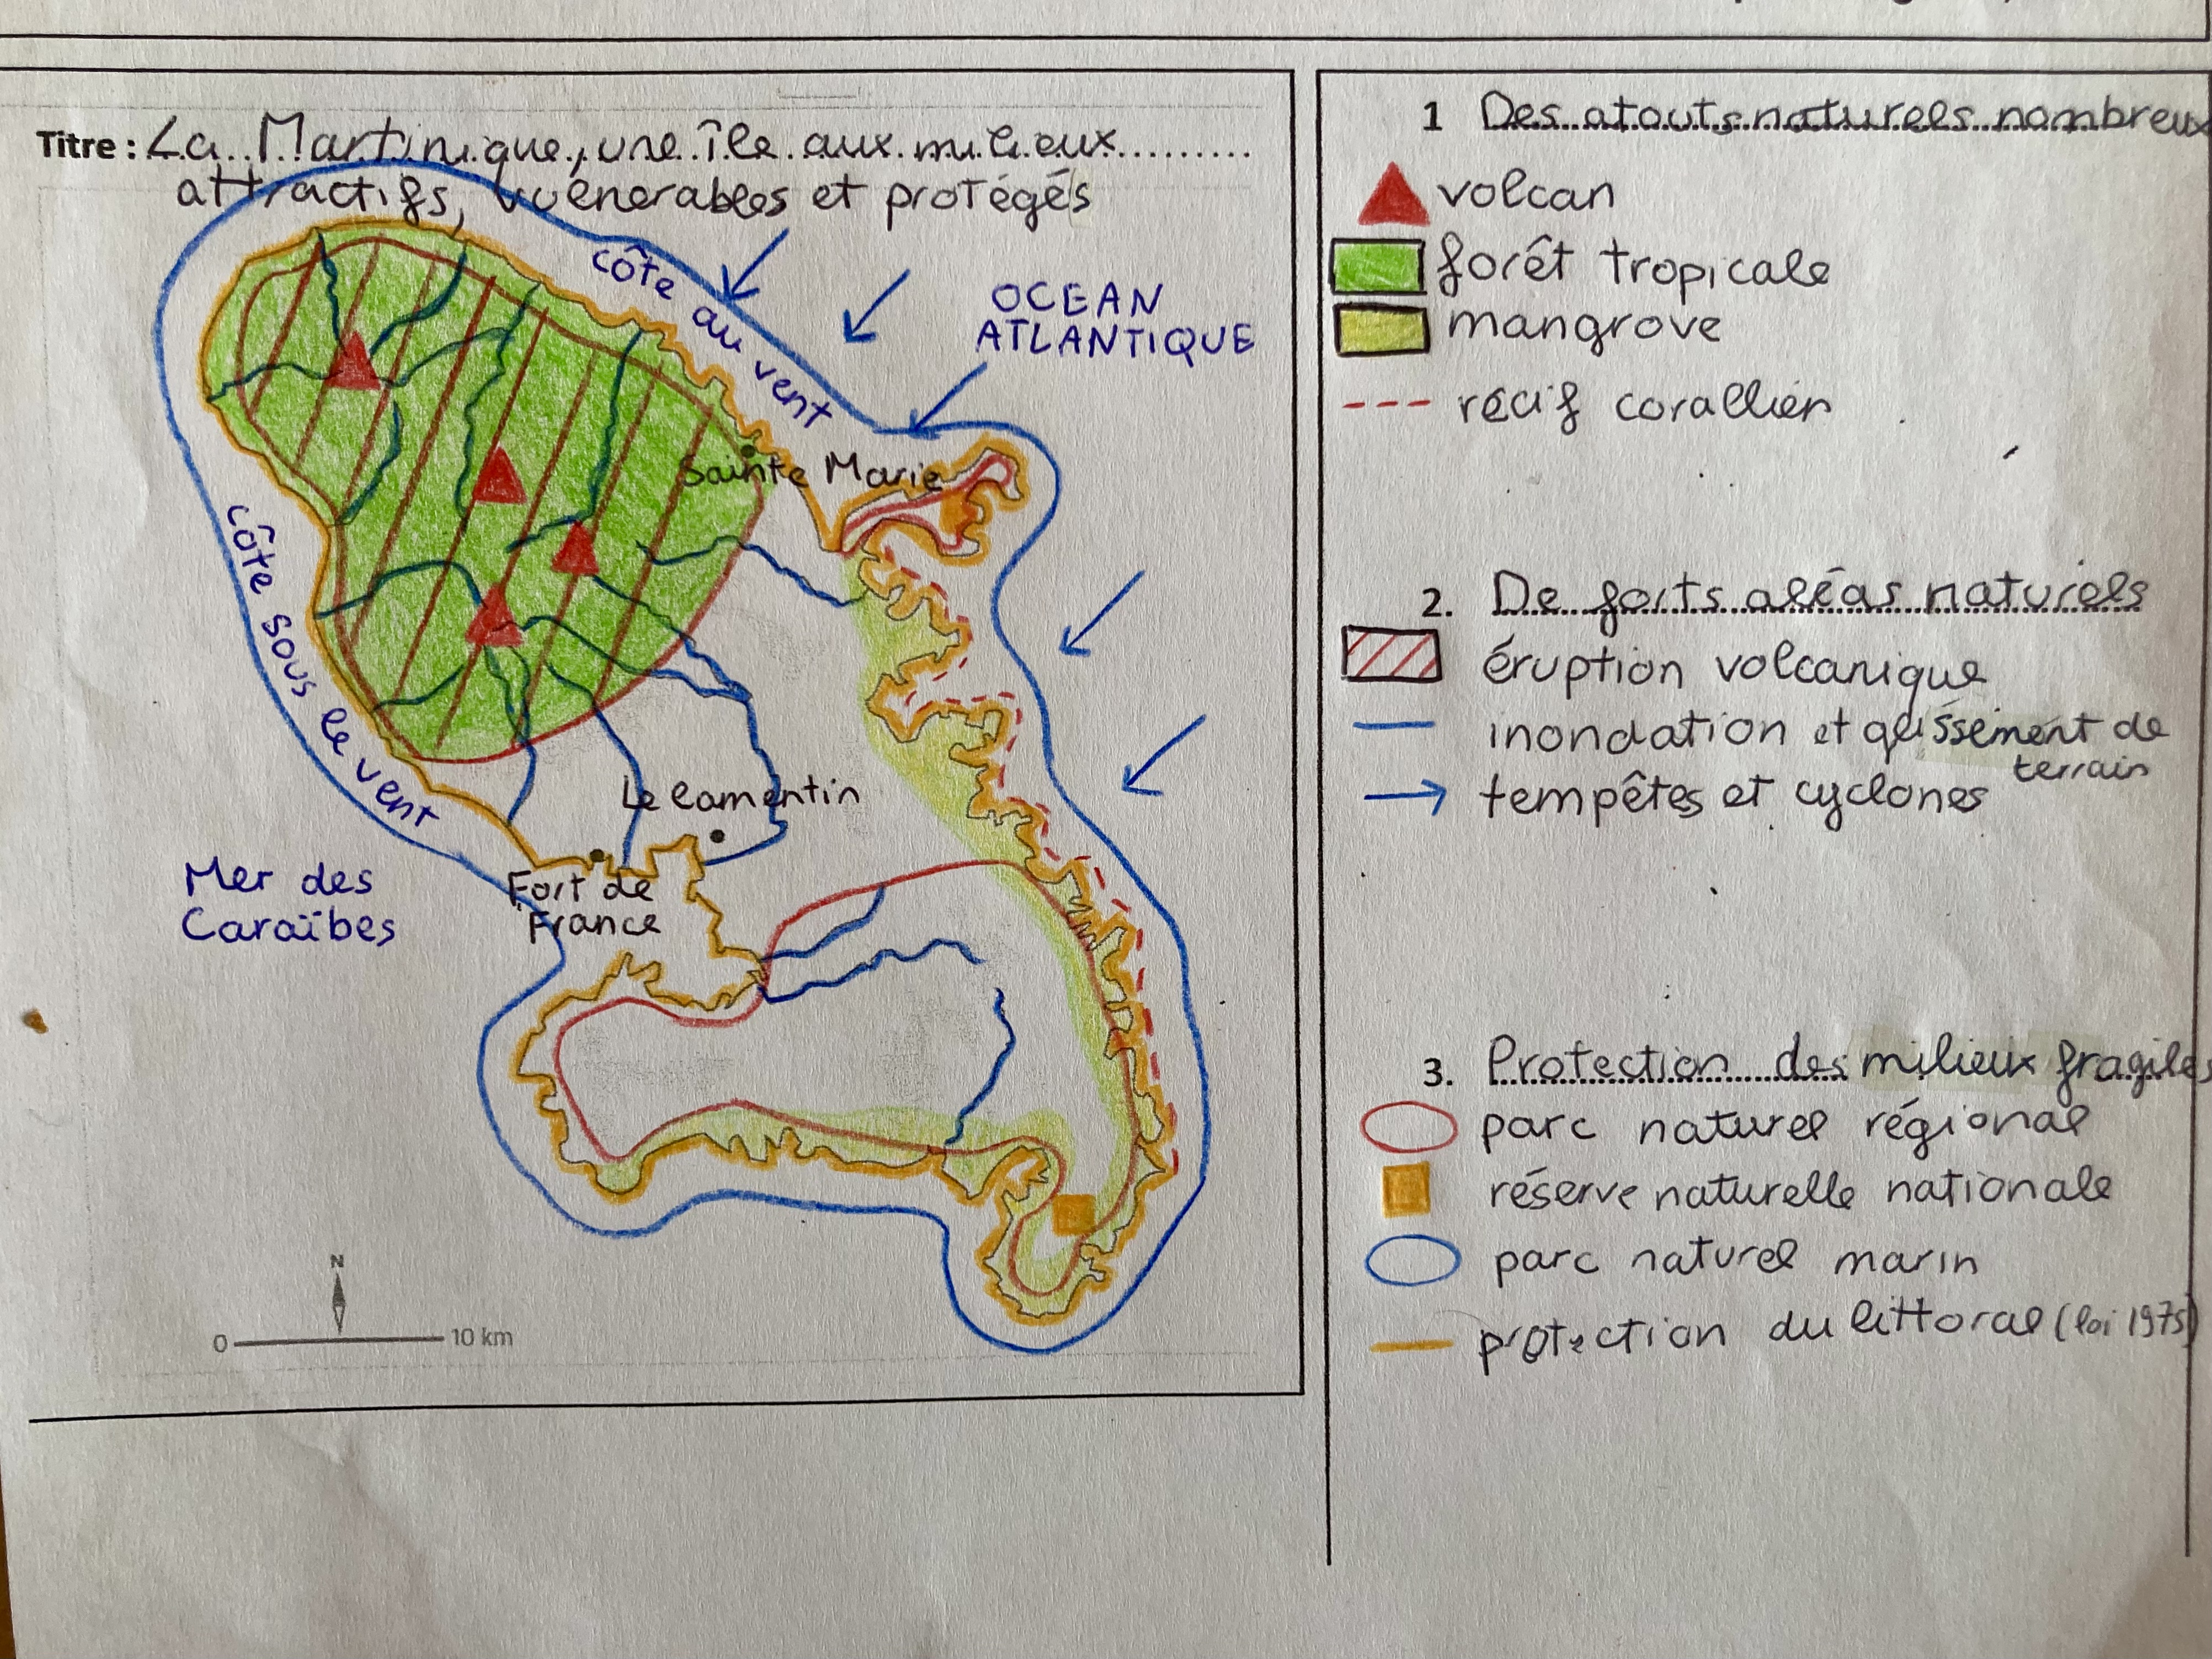 Titre : La Martinique, une île aux milieux
attractifs, vulnérables et protégés
côte au vent
OCEAN
ATLANTIQUE
Sainte Marie
côte sous le vent
Le lamentin
Fort de
France
Mer des
Caraïbes
N
0 10 km
1 Des atouts naturels nombreux
volcan
forêt tropicale
mangrove
récif corallien
2. De forts aléas naturels
éruption volcanique
inondation et glissement de
terrain
tempêtes et cyclones
3. Protection des milieux fragiles
parc naturel régional
réserve naturelle nationale
parc naturel marin
protection du littoral (loi 1975)